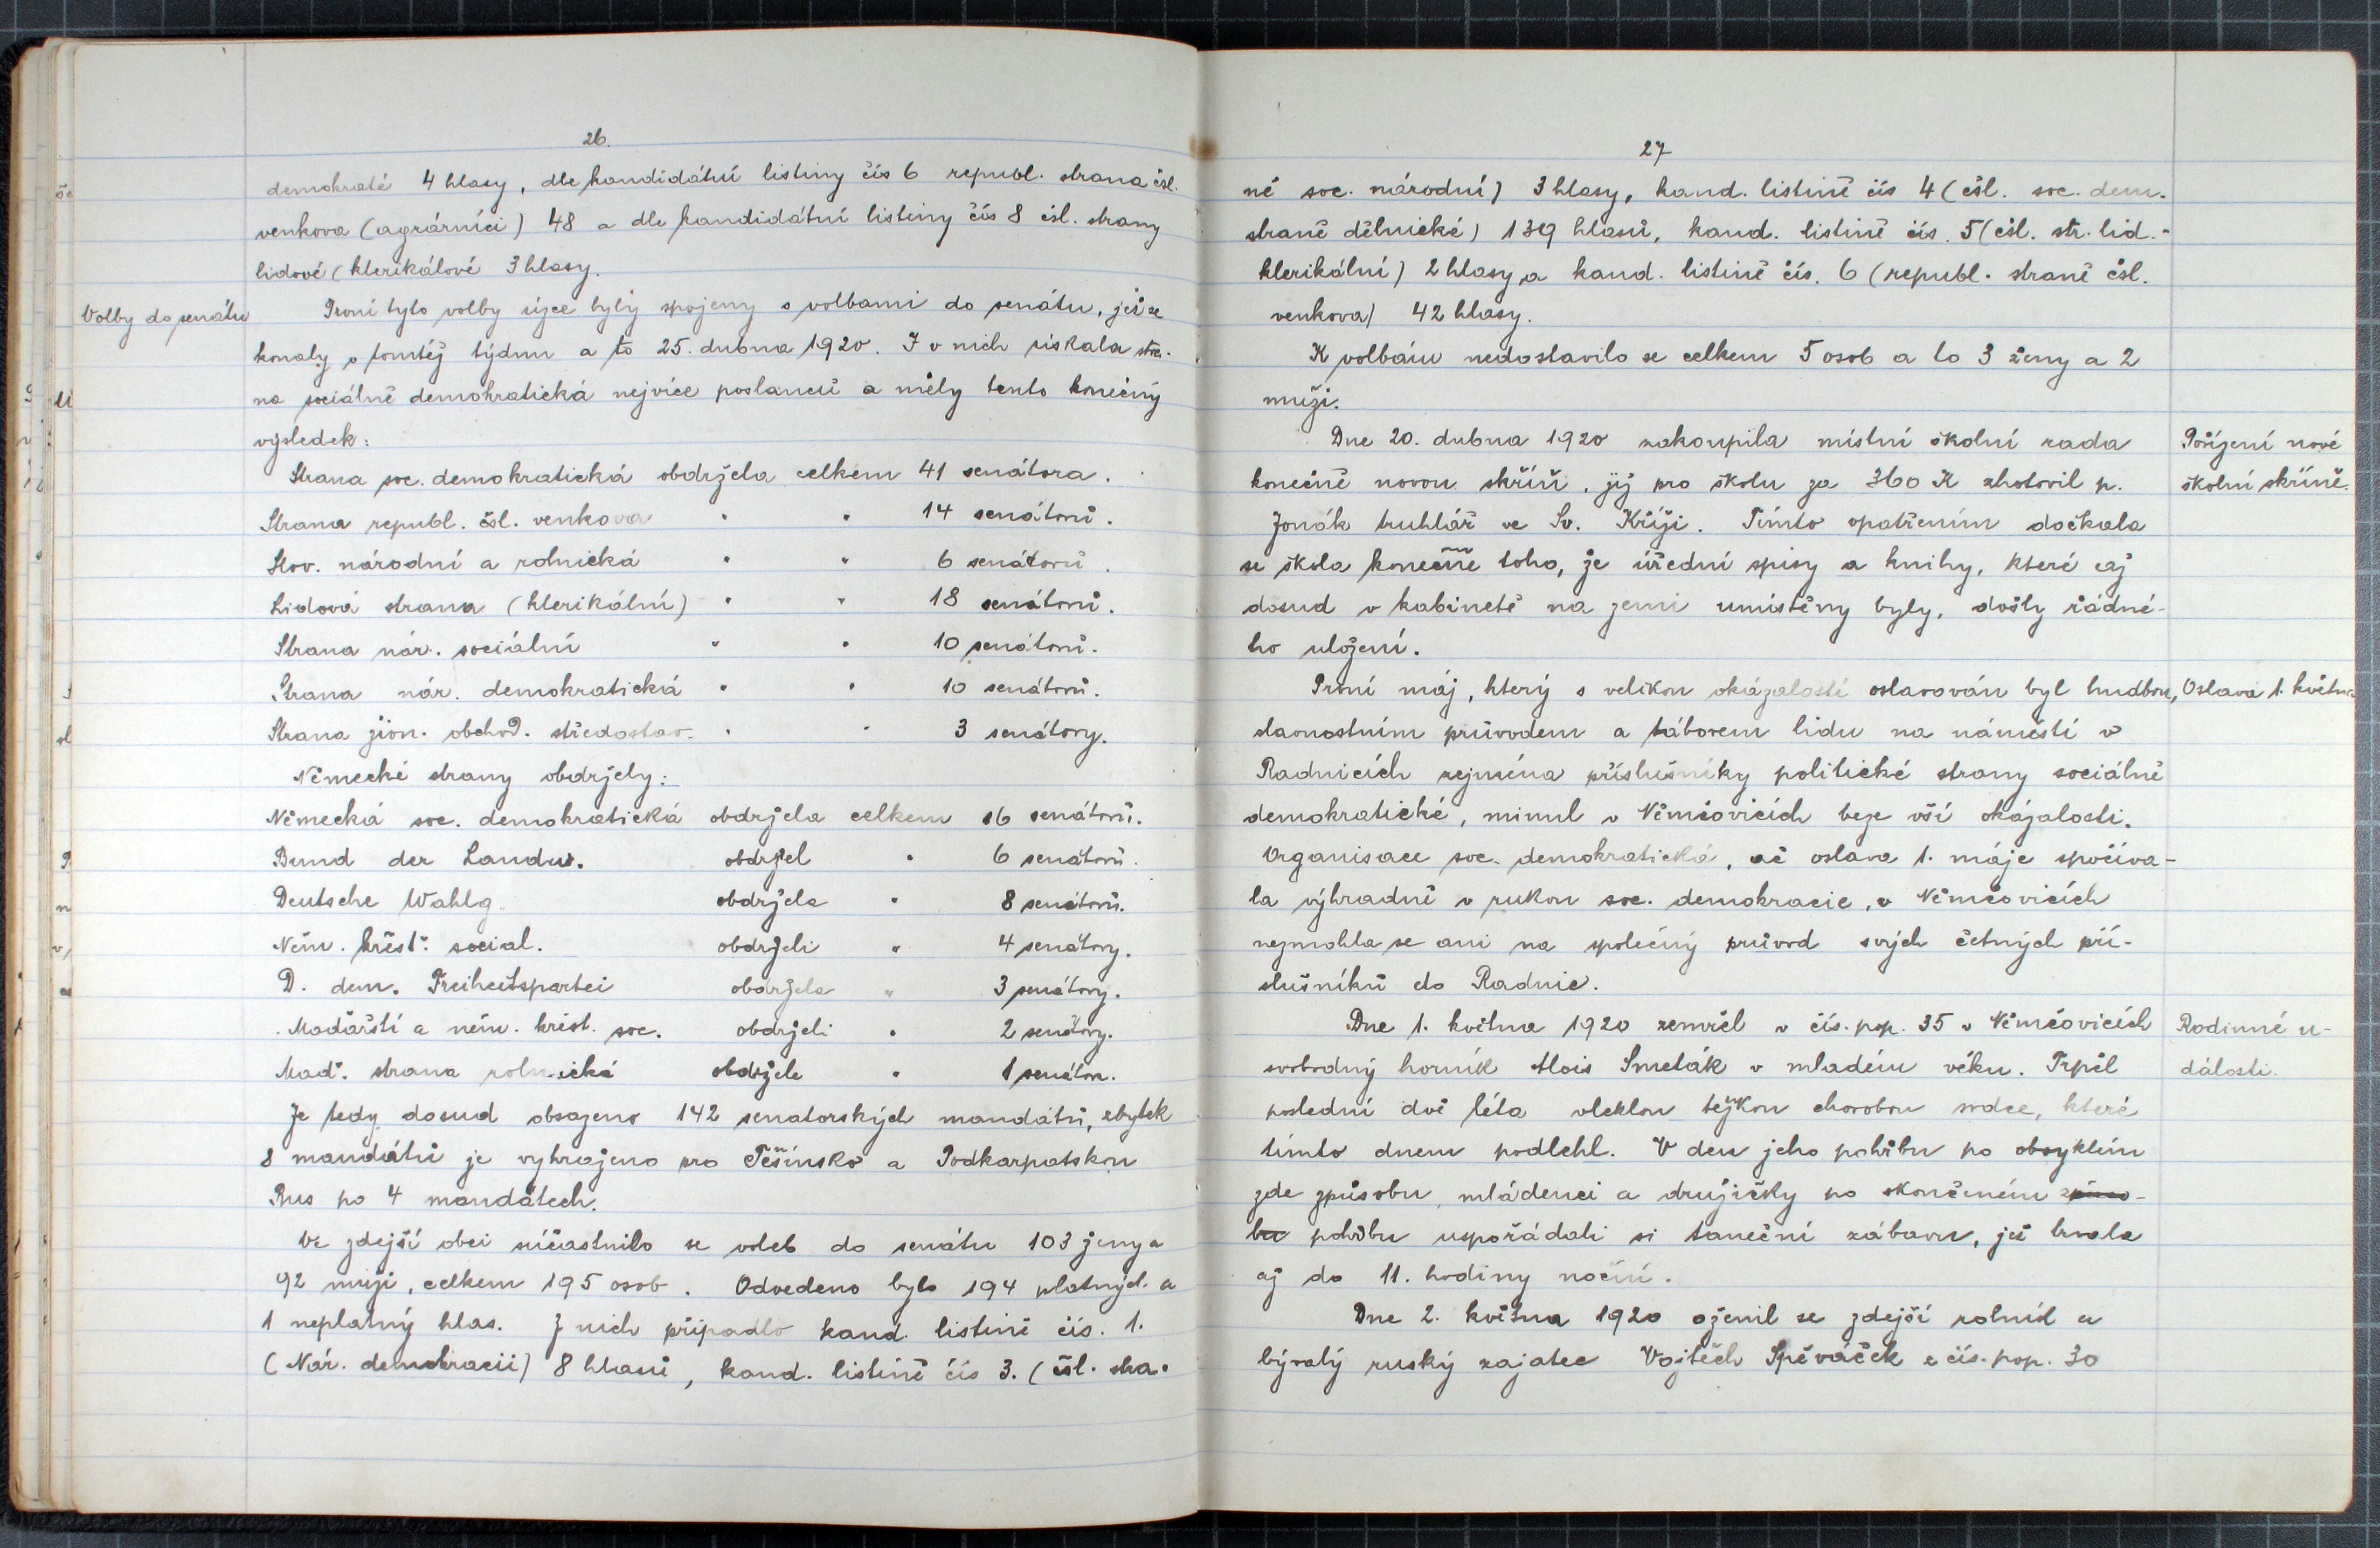 26.
demokraté 4 hlasy, dle kandidátní listiny čís 6 republ. strana čsl.
venkova (agrárníci) 48 a dle kandidátní listiny čís 8 čsl. strany
lidové (klerikálové 3 hlasy.
Volby do senátu
První tyto volby úzce byly spojeny s volbami do senátu, jež se
konaly v tomtéž týdnu a to 25. dubna 1920. I v nich získala stra-
na sociálně demokratická nejvíce poslanců a měly tento konečný
výsledek:
Strana soc. demokratická obdržela celkem 41 senátora.
Strana republ. čsl. venkova " " 14 senátorů.
Slov. národní a rolnická " " 6 senátorů.
Lidová strana (klerikální) " " 18 senátorů.
Strana nár. sociální " " 10 senátorů.
Strana nár. demokratická " " 10 senátorů.
Strana živn. obchod. středostav. " " 3 senátory.
Německé strany obdržely:
Německá soc. demokratická obdržela celkem 16 senátorů.
Bund der Landw. obdržel " 6 senátorů.
Deutsche Wahlg. obdržela " 8 senátorů.
Něm. křesť. social. obdrželi " 4 senátory.
D. dem. Freiheitspartei obdržela " 3 senátory.
Maďarští a něm. křest. soc. obdrželi " 2 senátory.
Maď. strana rolnická obdržela " 1 senátor.
Je tedy dosud obsazeno 142 senatorských mandátů, zbytek
8 mandátů je vyhrazeno pro Těšínsko a Podkarpatskou
Rus po 4 mandátech.
Ve zdejší obci súčastnilo se voleb do senátu 103 ženy a
92 muži, celkem 195 osob. Odvedeno bylo 194 platných a
1 neplatný hlas. Z nich připadlo kand. listině čís. 1.
(Nár. demokracii) 8 hlasů, kand. listině čís 3. (čsl. stra-
27
ně soc. národní) 3 hlasy, kand. listině čís 4 (čsl. soc. dem.
straně dělnické) 139 hlasů, kand. listině čís. 5 (čsl. str. lid.-
klerikální) 2 hlasy a kand. listině čís. 6 (republ. straně čsl.
venkova) 42 hlasy.
K volbám nedostavilo se celkem 5 osob a to 3 ženy a 2
muži.
Dne 20. dubna 1920 zakoupila místní školní rada
Pořízení nové
konečně novou skříň, jíž pro školu za 360 K zhotovil p.
školní skříně.
Jonák truhlář ve Sv. Kříži. Tímto opatřením dočkala
se škola konečně toho, že úřední spisy a knihy, které až
dosud v kabinetě na zemi umístěny byly, došly řádné-
ho uložení.
První máj, který s velikou okázalostí oslavován byl hudbou,
Oslava 1. května
slavnostním průvodem a táborem lidu na náměstí v
Radnicích zejména příslušníky politické strany sociálně
demokratické, minul v Němčovicích beze vší okázalosti.
Organisace soc. demokratická, ač oslava 1. máje spočíva-
la výhradně v rukou soc. demokracie, v Němčovicích
nezmohla se ani na společný průvod svých četných pří-
slušníků do Radnic.
Dne 1. května 1920 zemřel v čís. pop. 35 v Němčovicích
Rodinné u-
svobodný horník Alois Smeták v mladém věku. Trpěl
dálosti.
poslední dvě léta vleklou těžkou chorobou srdce, které
tímto dnem podlehl. V den jeho pohřbu po obvyklém
zde způsobu, mládenci a družičky po skončeném způso-
bu pohřbu uspořádali si taneční zábavu, jež trvala
až do 11. hodiny noční.
Dne 2. května 1920 oženil se zdejší rolník a
bývalý ruský zajatec Vojtěch Spěváček z čís. pop. 30